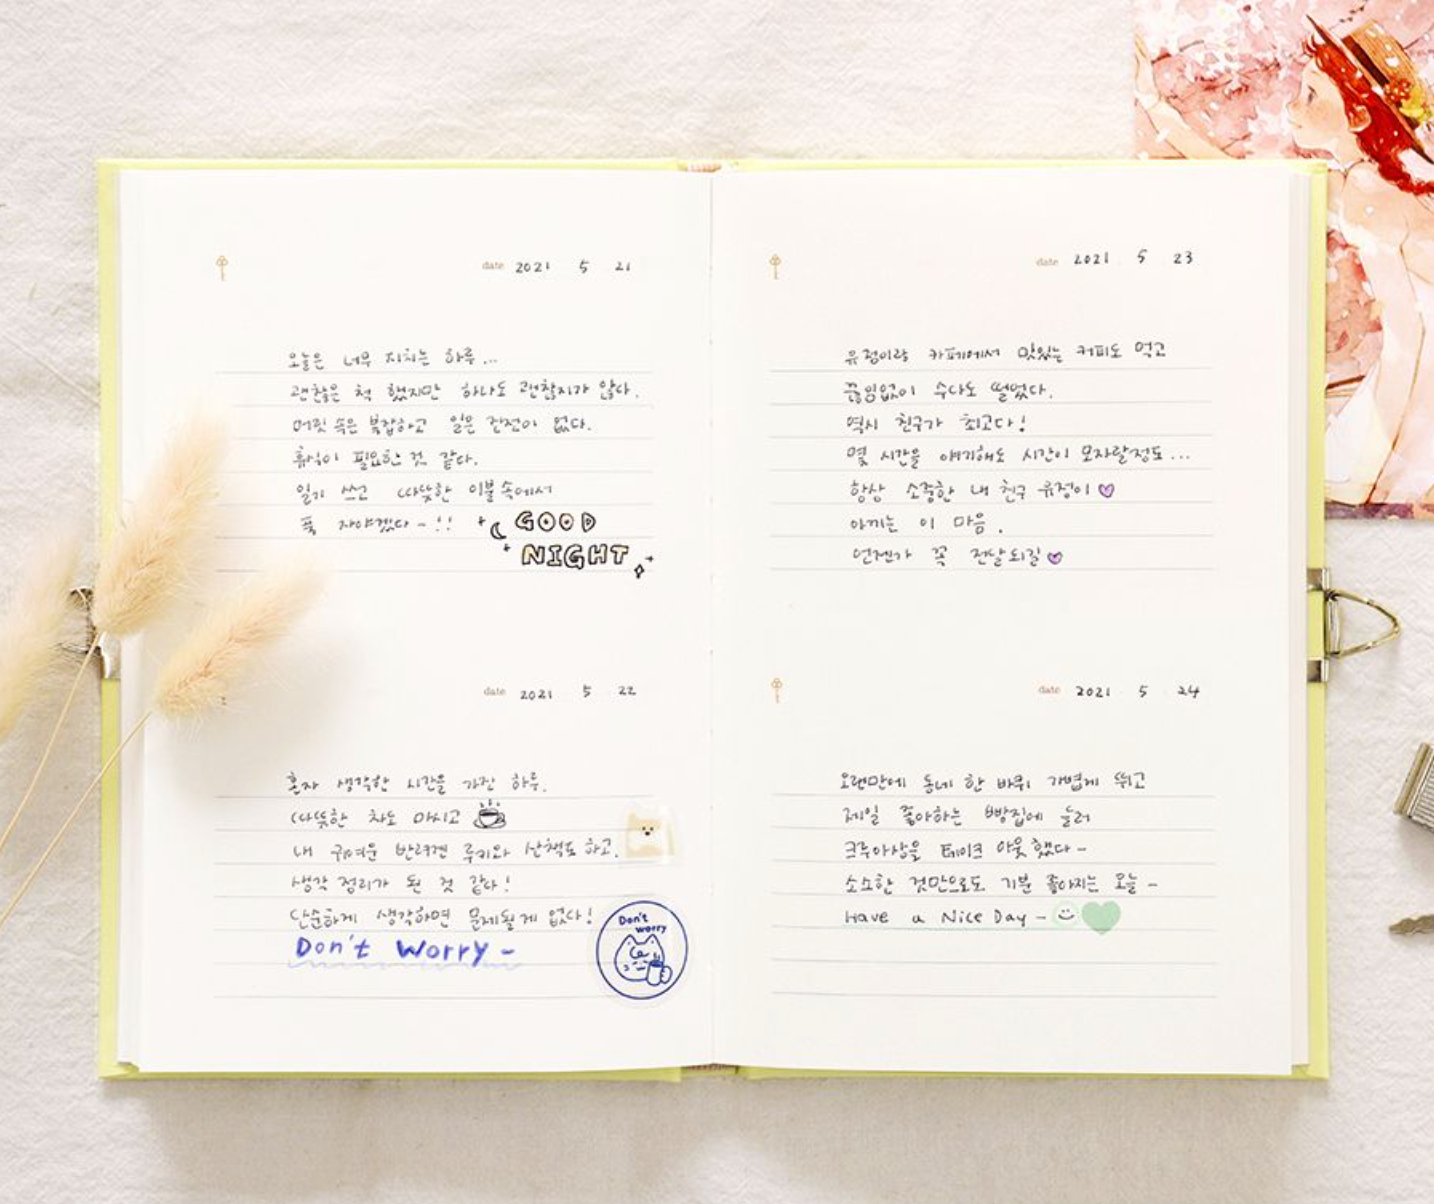 date 2021 5 21
오늘은 너무 지치는 하루...
괜찮은 척 했지만 하나도 괜찮지가 않다.
머릿 속은 복잡하고 일은 진전이 없다.
휴식이 필요한 것 같다.
일기 쓰고 따뜻한 이불 속에서
푹 자야겠다-!!
GOOD
NIGHT
date 2021 5 22
혼자 생각한 시간을 가진 하루.
따뜻한 차도 마시고
내 귀여운 반려견 루키와 산책도 하고.
생각 정리가 된 것 같다!
단순하게 생각하면 문제될 게 없다!
Don't Worry -
Don't
worry
date 2021 5 23
유정이랑 카페에서 맛있는 커피도 먹고
끊임없이 수다도 떨었다.
역시 친구가 최고다!
몇 시간을 얘기해도 시간이 모자랄정도...
항상 소중한 내 친구 유정이
아끼는 이 마음.
언젠가 꼭 전달되길
date 2021 5 24
오랜만에 동네 한 바퀴 가볍게 뛰고
제일 좋아하는 빵집에 들러
크루아상을 테이크 아웃 했다-
소소한 것만으로도 기분 좋아지는 오늘 -
Have a Nice Day -